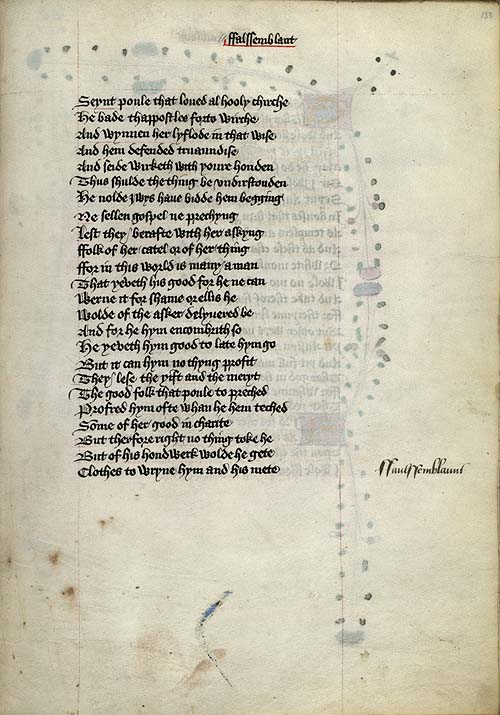 ffalssemblant
133
Seynt poule that loued al hooly chirche
He bade thappostles forto wirche
And wynnen her lyflode in that wise
And hem defended truaundise
And seide wirketh with youre honden
Thus shulde the thing be vndirstonden
He nolde ywys haue bidde hem begging
Ne sellen gospel ne prechyng
Lest they berafte with her askyng
ffolk of her catel or of her thing
ffor in this world is many a man
That yeveth his good for he ne can
Werne it for shame or ellis he
Wolde of the asker delyuered be
And for he hym encombrith so
He yeveth hym good to late hym go
But it can hym no thyng profit
They lese the yift and the meryt
The good folk that poule to preched
Profred hym ofte whan he hem teched
Some of her good in charite
But therfore right no thing toke he
But of his hondwerk wolde he gete
Clothes to wryne hym and his mete
ffaulssemblaunt